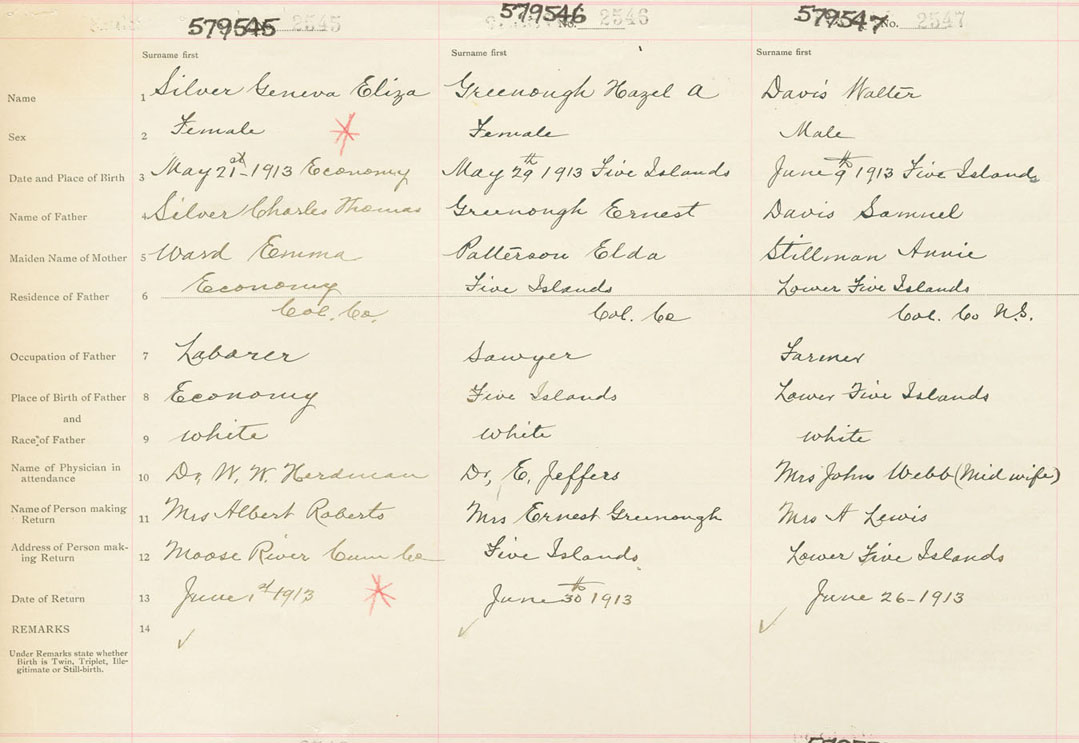 579545 2545 579546 No. 2546 579547 No. 2547
Surname first Surname first Surname first
Name 1 Silver Geneva Eliza Greenough Hazel A Davis Walter
Sex 2 Female Female Male
Date and Place of Birth 3 May 21st 1913 Economy May 29th 1913 Five Islands June 9th 1913 Five Islands
Name of Father 4 Silver Charles Thomas Greenough Ernest Davis Samuel
Maiden Name of Mother 5 Ward Emma Patterson Elda Stillman Annie
Residence of Father 6 Economy Five Islands Lower Five Islands
Col. Co. Col. Co Col. Co N.S.
Occupation of Father 7 Laborer Sawyer Farmer
Place of Birth of Father 8 Economy Five Islands Lower Five Islands
and
Race of Father 9 white white white
Name of Physician in
attendance 10 Dr, W. W. Herdman Dr, E, Jeffers Mrs John Webb (Mid wife)
Name of Person making
Return 11 Mrs Albert Roberts Mrs Ernest Greenough Mrs A Lewis
Address of Person mak-
ing Return 12 Moose River Cum Co Five Islands Lower Five Islands
Date of Return 13 June 1st 1913 June 30th 1913 June 26-1913
REMARKS 14
Under Remarks state whether
Birth is Twin, Triplet, Ille-
gitimate or Still-birth.